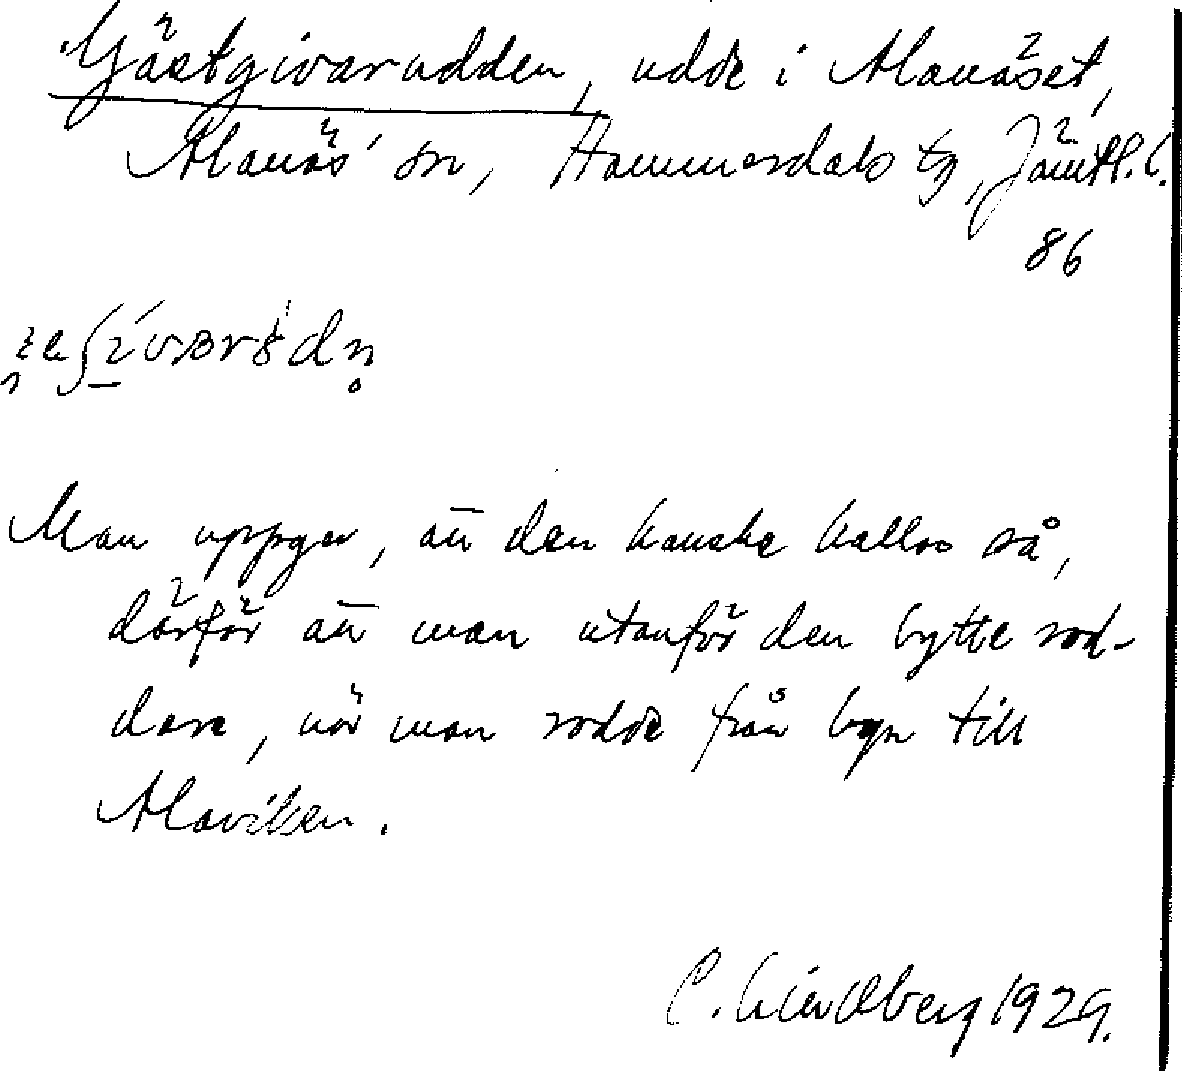 Gästgivarudden, udde i Alanäset,
Alanäs sn, Hammerdals tg, Jämtl. l.
86
Man uppger, att den kanske kallas så,
därför att man utanför den bytte rod-
dare, när man rodde från byn till
Alaviken.
C. Lindberg 1929.